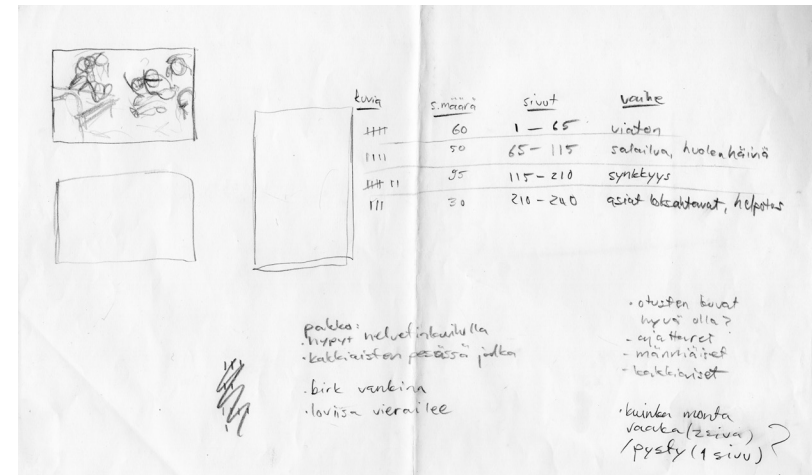 kuvia s.määrä sivut vaihe
60 1 – 65 viaton
50 65 – 115 salailua, huolenhäivä
95 115 – 210 synkkyys
30 210 – 240 asiat loksahtavat, helpotus
pakko:
·hypyt helvetinkuilulla
·kakkiaisten pesässä jalka
·birk vankina
·loviisa vierailee
·otusten kuvat
hyvä olla?
- ajattaret
- männiäiset
- kakkiaiset
·kuinka monta
vaaka (2 sivua)
/pysty (1 sivu) ?